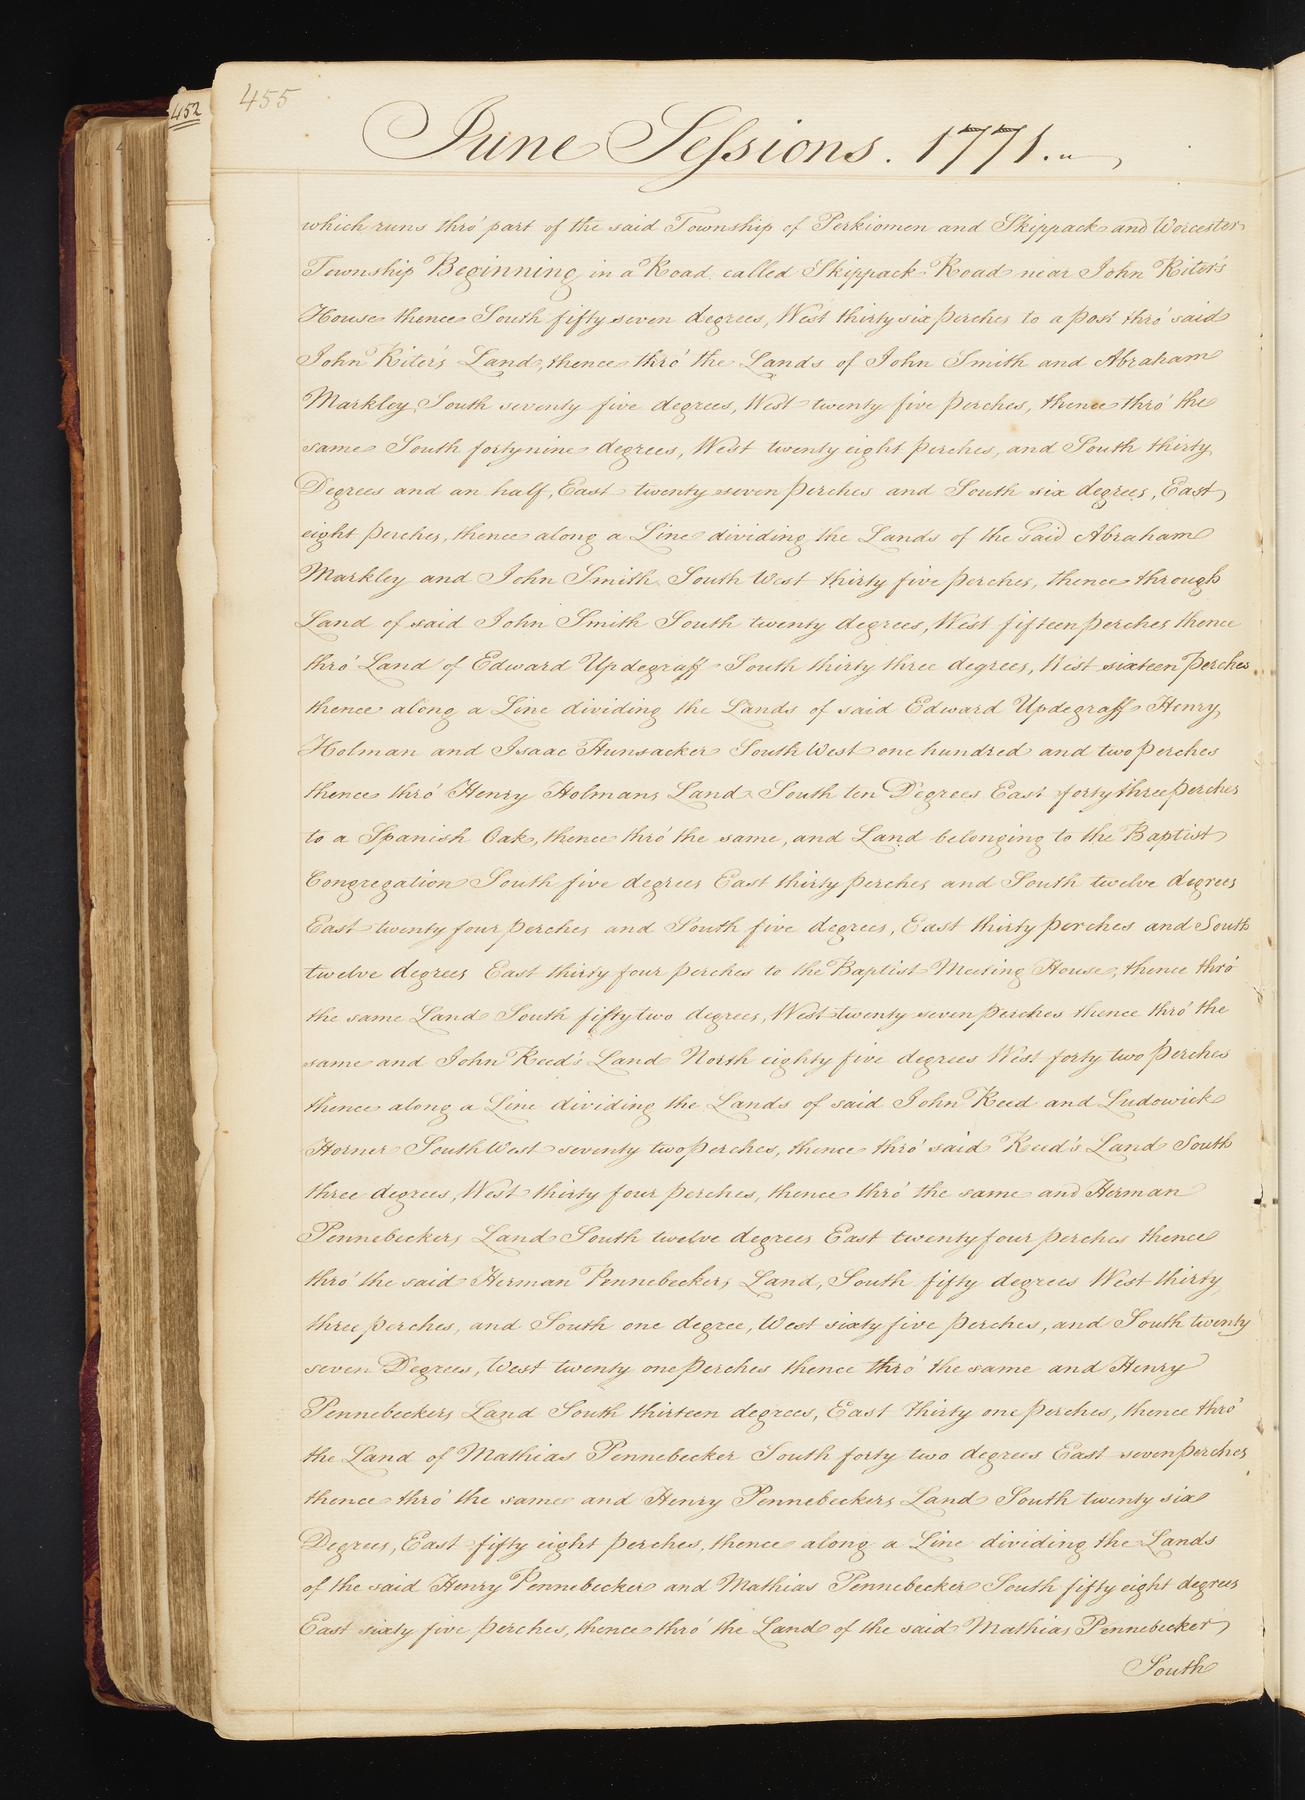 455
452
June Sessions. 1771.
which runs thro' part of the said Township of Perkiomen and Skippack and Worcester
Township Beginning in a Road called Skippack Road near John Riter's
House thence South fifty seven degrees, West thirty six perches to a post thro' said
John Riter's Land, thence thro' the Lands of John Smith and Abraham
Markley, South seventy five degrees, West twenty five perches, thence thro' the
same South forty nine degrees, West twenty eight perches, and South thirty
Degrees and an half, East twenty seven perches and South six degrees, East
eight perches, thence along a Line dividing the Lands of the said Abraham
Markley and John Smith South West thirty five perches, thence through
Land of said John Smith South twenty degrees, West fifteen perches thence
thro' Land of Edward Updegraff South thirty three degrees, West sixteen perches
thence along a Line dividing the Lands of said Edward Updegraff Henry
Holman and Isaac Hunsacker South West one hundred and two perches
thence thro' Henry Holmans Land South ten Degrees East forty three perches
to a Spanish Oak, thence thro' the same, and Land belonging to the Baptist
Congregation South five degrees East thirty perches and South twelve degrees
East twenty four perches and South five degrees, East thirty perches and South
twelve degrees East thirty four perches to the Baptist Meeting House, thence thro'
the same Land South fifty two degrees, West twenty seven perches thence thro' the
same and John Reed's Land North eighty five degrees West forty two perches
thence along a Line dividing the Lands of said John Reed and Ludowick
Horner South West seventy two perches, thence thro' said Reed's Land South
three degrees, West thirty four perches, thence thro' the same and Herman
Pennebeckers Land South twelve degrees East twenty four perches thence
thro' the said Herman Pennebeckers Land, South fifty degrees West thirty
three perches, and South one degree, West sixty five perches, and South twenty
seven Degrees, West twenty one perches thence thro' the same and Henry
Pennebeckers Land South thirteen degrees, East thirty one perches, thence thro'
the Land of Mathias Pennebecker South forty two degrees East seven perches
thence thro' the same and Henry Pennebeckers Land South twenty six
Degrees, East fifty eight perches, thence along a Line dividing the Lands
of the said Henry Pennebecker and Mathias Pennebecker South fifty eight degrees
East sixty five perches, thence thro' the Land of the said Mathias Pennebecker
South